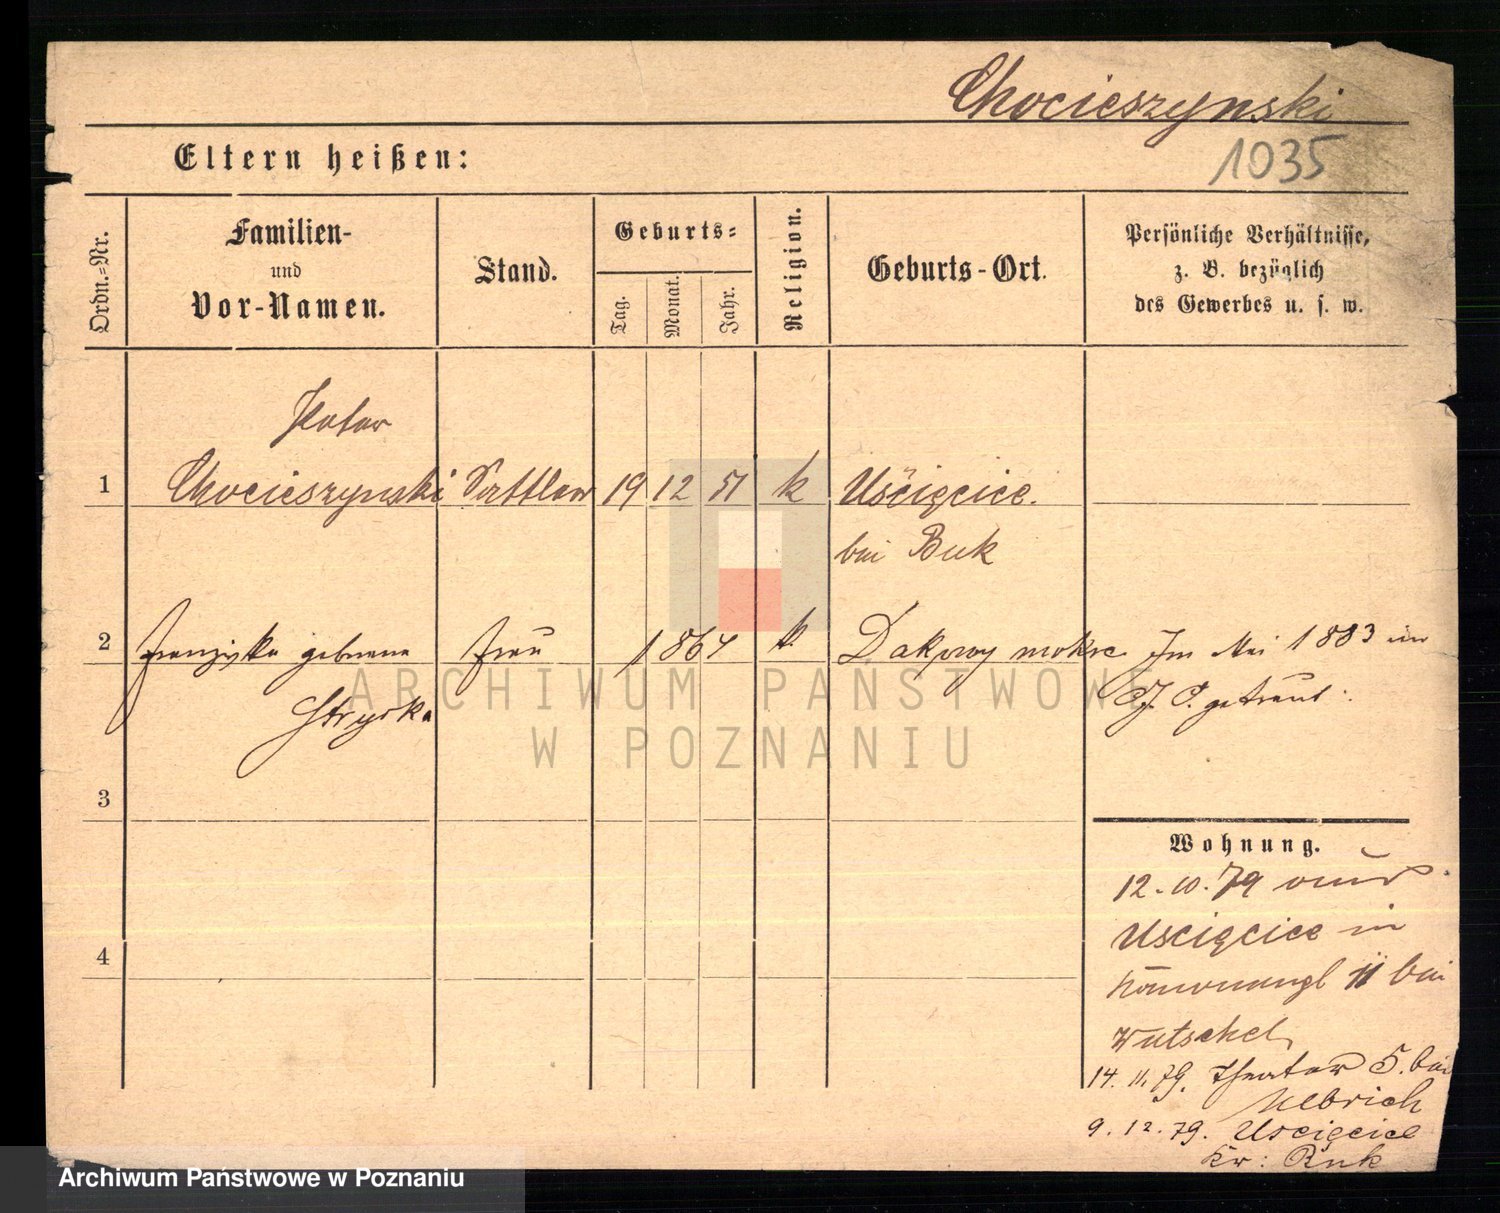 Chocieszynski
1035
Eltern heißen:
Ordn.-Nr.
Familien-
und
Vor-Namen.
Stand.
Geburts-
Tag.
Monat.
Jahr.
Religion.
Geburts-Ort.
Persönliche Verhältnisse,
z. B. bezüglich
des Gewerbes u. s. w.
Peter
1 Chocieszynski Sattler 19 12 51 k Uścięcice.
bei Buk
2 Franziska geborene Frau 1864 k. Dakowy mokre Im Mai 1883 in
getraut.
Stryska
3
Wohnung.
12.10.79 aus
Uscięcice in
11 bei
Wutschel,
4
14.11.79. Theater 5. bei
Ulbrich
9.12.79. Uscięcice
Kr: Buk
ARCHIWUM PAŃSTWOWE
W POZNANIU
Archiwum Państwowe w Poznaniu